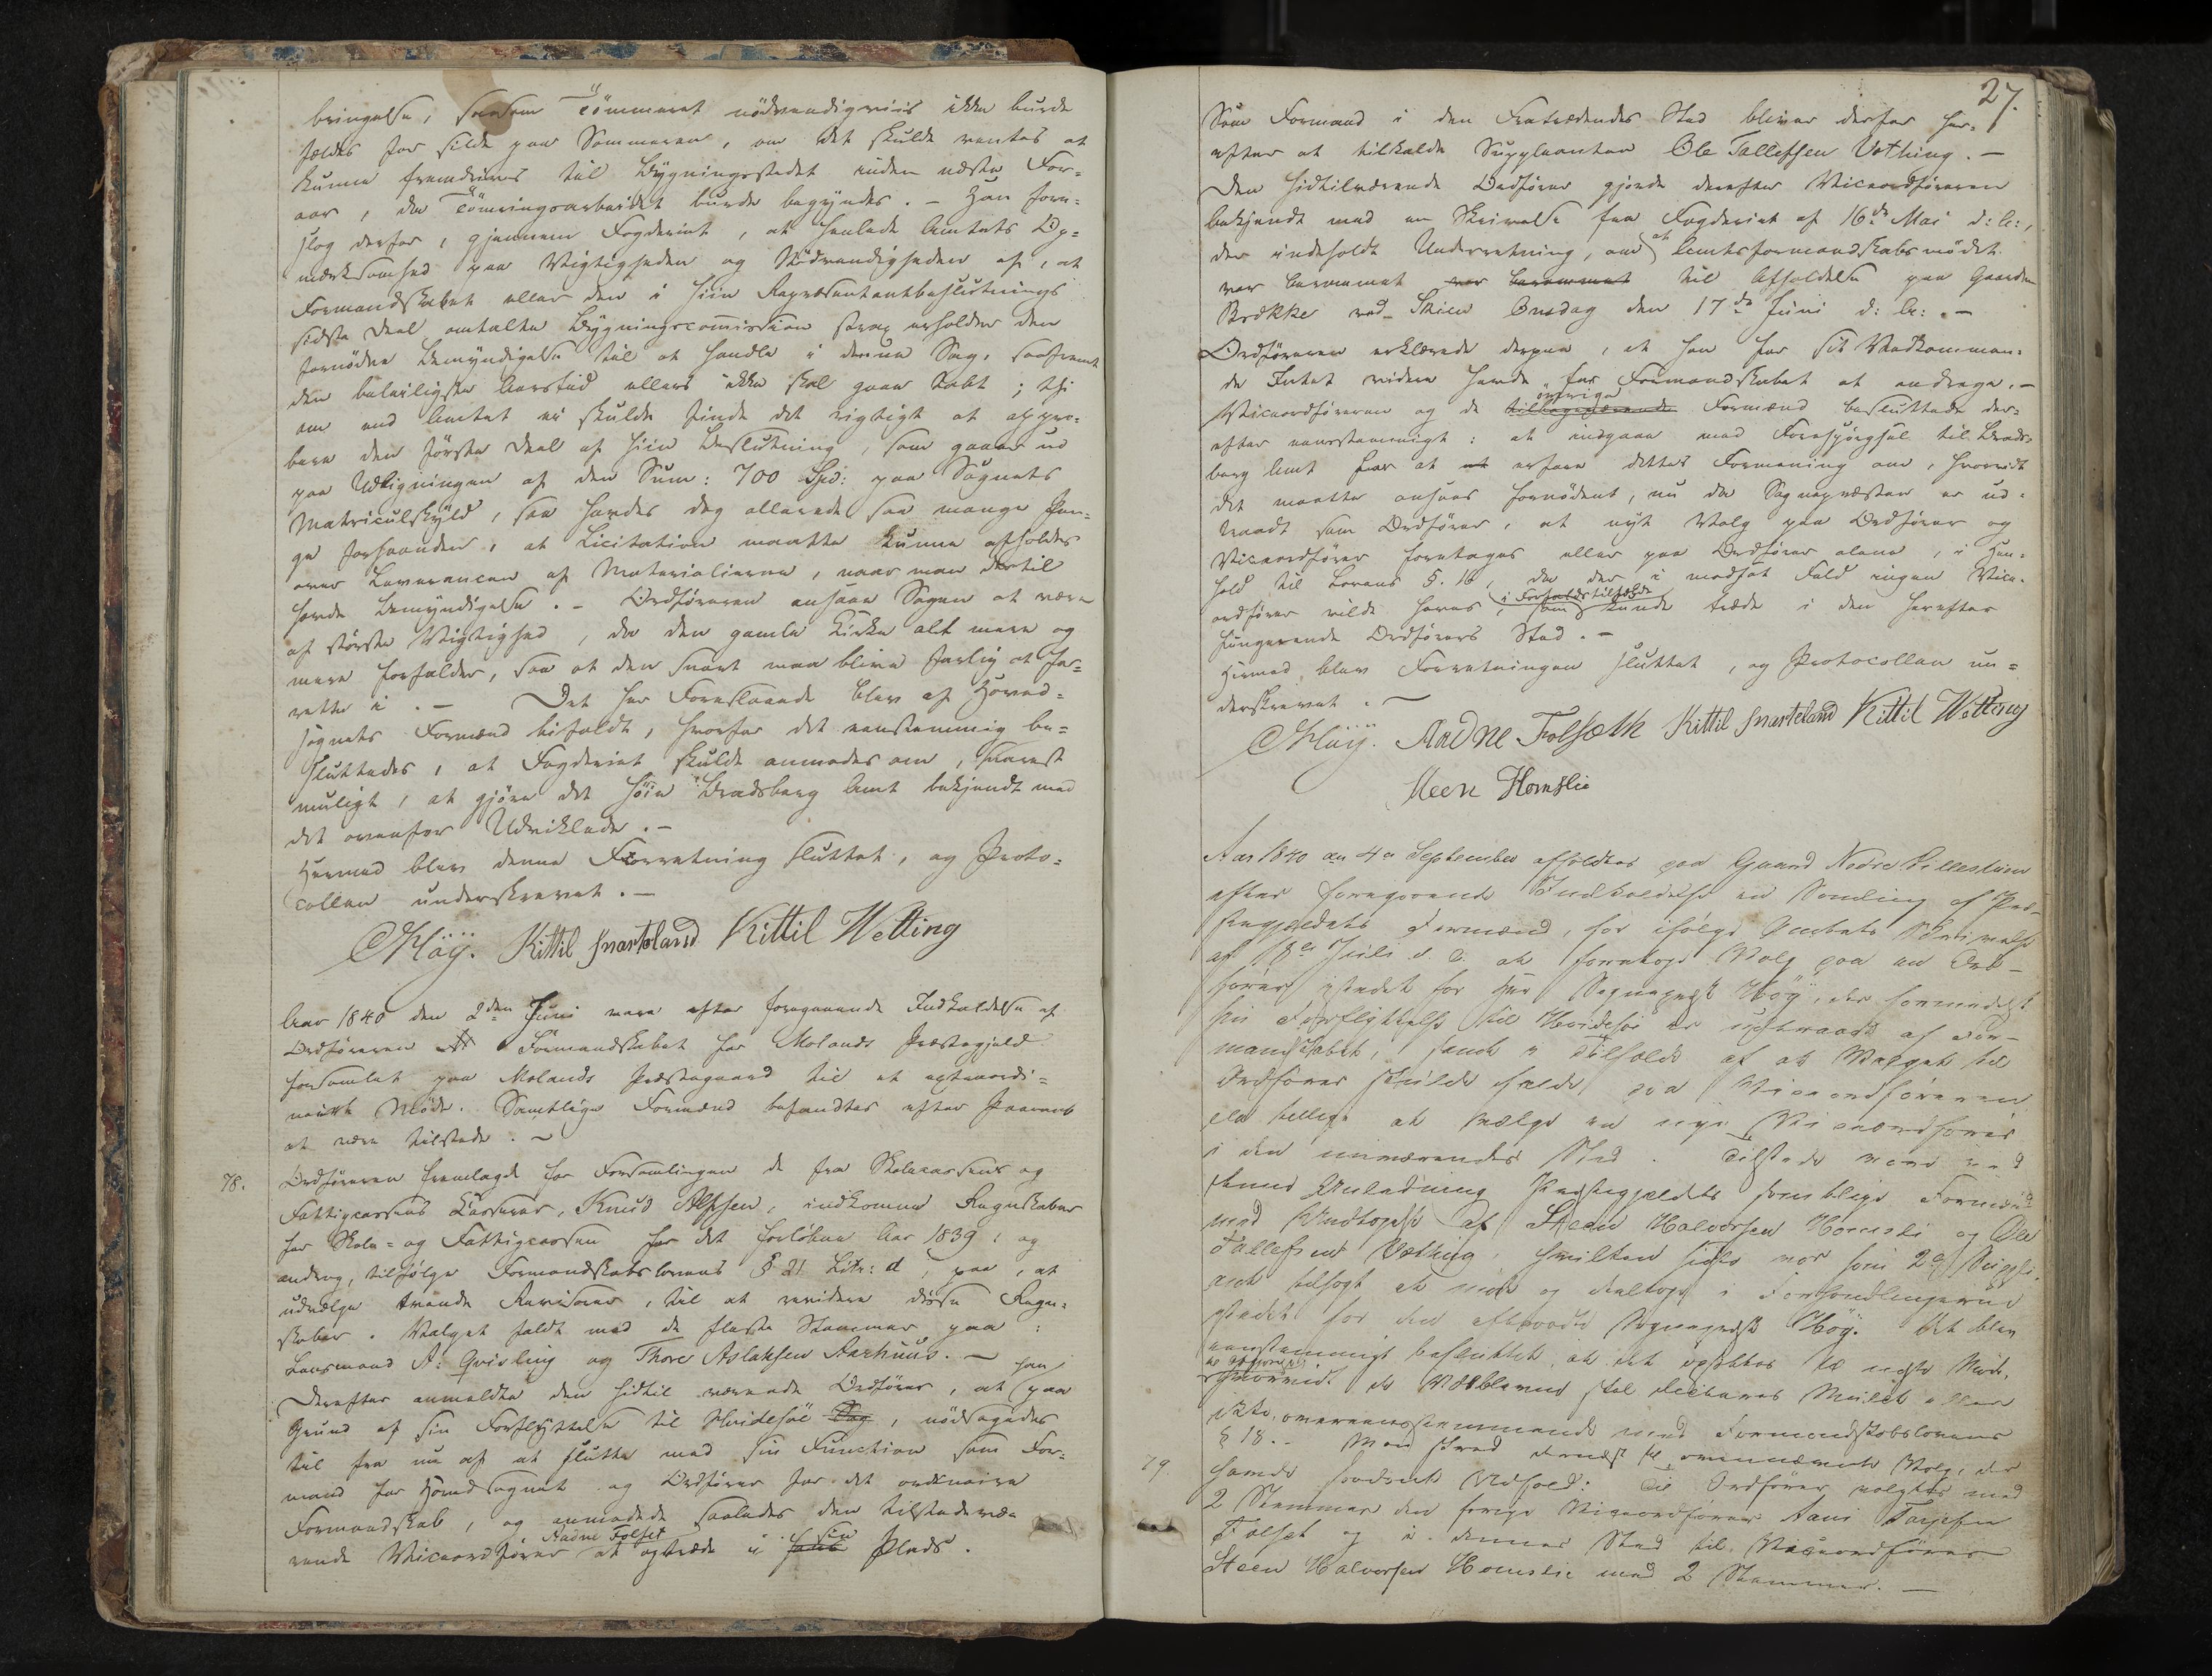 bringelse, saasom Tömmeret nödvendigviis ikke burde
fældes for silde paa Sommeren, om det skulde ventes at
kunne fremdrives til Bygningsstedet inden næste For-
aar, da Tömringsarbeidet burde begyndes. – Han fore-
slog derfor, gjennem Fogderiet, at henlede Amtets Op-
mærksomhed paa Vigtigheden og Nödvendigheden af, at
Formandskabet eller den i hiin Repræsentantbeslutnings
sidste Deel omtalte Bygningscommission strax erholder den
fornödne Bemyndigelse til at handle i denne Sag, saafremt
den beleiligste Aarstid ellers ikke skal gaae tabt; thi
om end Amtet ei skulde finde det rigtigt at appro-
bere den förste Deel af hiin Beslutning, som gaaer ud
paa Udligningen af den Sum: 700 Spd: paa Sognets
Matriculskyld, saa havdes dog allerede saa mange Pen-
ge forhaanden, at Licitation maatte kunne afholdes
over Leverancen af Materialierne, naar man dertil
havde Bemyndigelse. – Ordföreren ansaae Sagen at være
af störste Vigtighed, da den gamle Kirke alt mere og
mere forfalder, saa at den snart maa blive farlig at for-
rette i. – Det her Foreslaaede blev af Hoved-
sognets Formænd bifaldt, hvorfor det eenstemmig be-
sluttedes, at Fogderiet skulde anmodes om, snarest
muligt, at gjöre det höie Bradsberg Amt bekjendt med
det ovenfor Udviklede. –
Hermed blev denne Forretning sluttet, og Proto-
collen underskrevet. –
CHöÿ. Kittil Snarteland Kittil Wetting
Aar 1840 den 2den Juni vare efter foregaaende Indkaldelse af
Ordföreren Formandskabet for Molands Præstegjeld
forsamlet paa Molands Præstegaard til et extraordi-
nairt Möde. Samtlige Formænd befandtes efter Paaraab
at være tilstede. –
78. Ordföreren fremlagde for Forsamlingen de fra Skolecassens og
Fattigcassens Casserer, Knud Alfsen, indkomne Regnskaber
for Skole- og Fattigcassen for det forlöbne Aar 1839, og
androg, tilfölge Formandskabslovens § 21 Litr: d, paa, at
udvælge tvende Revisorer, til at revidere disse Regn-
skaber. Valget faldt med de fleste Stemmer paa:
Lensmand A: Qvisling og Thore Aslaksen Aarhuus. –
Derefter anmeldte den hidtil værende Ordförer, at han paa
Grund af sin Forflyttelse til Hvidesöe Sog, nödsagedes
til fra nu af at slutte med sin Function som For-
mand for Hovedsognet og Ordförer for det ordinaire
Formandskab, og anmodede saaledes den tilstedevæ-
rende Viceordförer Aadne Folset at optræde i hans sin Plads.
27.
Som Formand i den Fratrædendes Sted bliver derfor her-
efter at tilkalde Suppleanten Ole Tallefsen Vething. –
Den hidtilværende Ordförer gjorde derefter Viceordföreren
bekjendt med en Skrivelse fra Fogderiet af 16de Mai d: A:,
der indeholdt Underretning, om at Amtsformandskabsmödet
var berammet var berammet til Afholdelse paa Gaarden
Brekke ved Skien Onsdag den 17de Juni d: A: . –
Ordföreren erklærede derpaa, at han for sit Vedkommen-
de Intet videre havde for Formandskabet at andrage. –
Viceordföreren og de tilbageværende övrige Formænd besluttede der-
efter eenstemmigt: at indgaae med Forespörgsel til Brads-
berg Amt for at erfare dettes Formening om, hvorvidt
det maatte ansees fornödent, nu da Sognepræsten er ud-
traadt som Ordförer, at nyt Valg paa Ordförer og
Viceordförer foretages eller paa Ordförer alene, i Hen-
hold til Lovens §. 16, da der i modsat Fald ingen Vice-
ordförer vilde haves, som i Forfaldstilfælde kunde træde i den herefter
fungerende Ordförers Sted. –
Hermed blev Forretningen sluttet, og Protocollen un-
derskrevet. –
CHöÿ. Aadne Folseth Kittil Snarteland Kittil Wetting
Steen Homslie
Aar 1840 den 4de September afholdtes paa Gaard Nedre
efter foregaaende Indkaldelse en Samling af Præ-
stegjeldets Formænd, for ifölge Amtets Skrivelse
af 8de Juli d. A. at foretage Valg paa en Ord-
förer istedet for Hr Sognepræst Höÿ, der formedelst
sin Forflyttelse til Hvidesöe er udtraadt af For-
mandskabet, samt i Tilfælde af at Valget til
Ordförer skulde falde paa Viceordföreren
da tillige at vælge en nye Viceordförer
i den nuværendes Sted. Tilstede vare ved
denne Anledning Præstegjeldets samtlige Formænd
med Undtagelse af Steen Halvorsen Homslie og Ole
Tallefsen Vething, hvilken sidste var som 2de Supple-
ant tilsagt at möde og deeltage i Forhandlingerne
istedet for den aftraadte Sognepræst Höÿ. Det blev
eenstemmigt besluttet, at det opsættes til næste Möde,
at afgjöre hvorvidt de Udeblevne skal ilægges Mulct eller
ikke, overeensstemmende med Formandskabslovens
§ 18. – Man skred dernæst til ovennævnte Valg, der
79. havde saadant Udfald: Til Ordförer valgtes med
2 Stemmer den forrige Viceordförer Aani Tarjesen
Folset og i dennes Sted til Viceordförer
Steen Halvorsen Homslie med 2 Stemmer. –